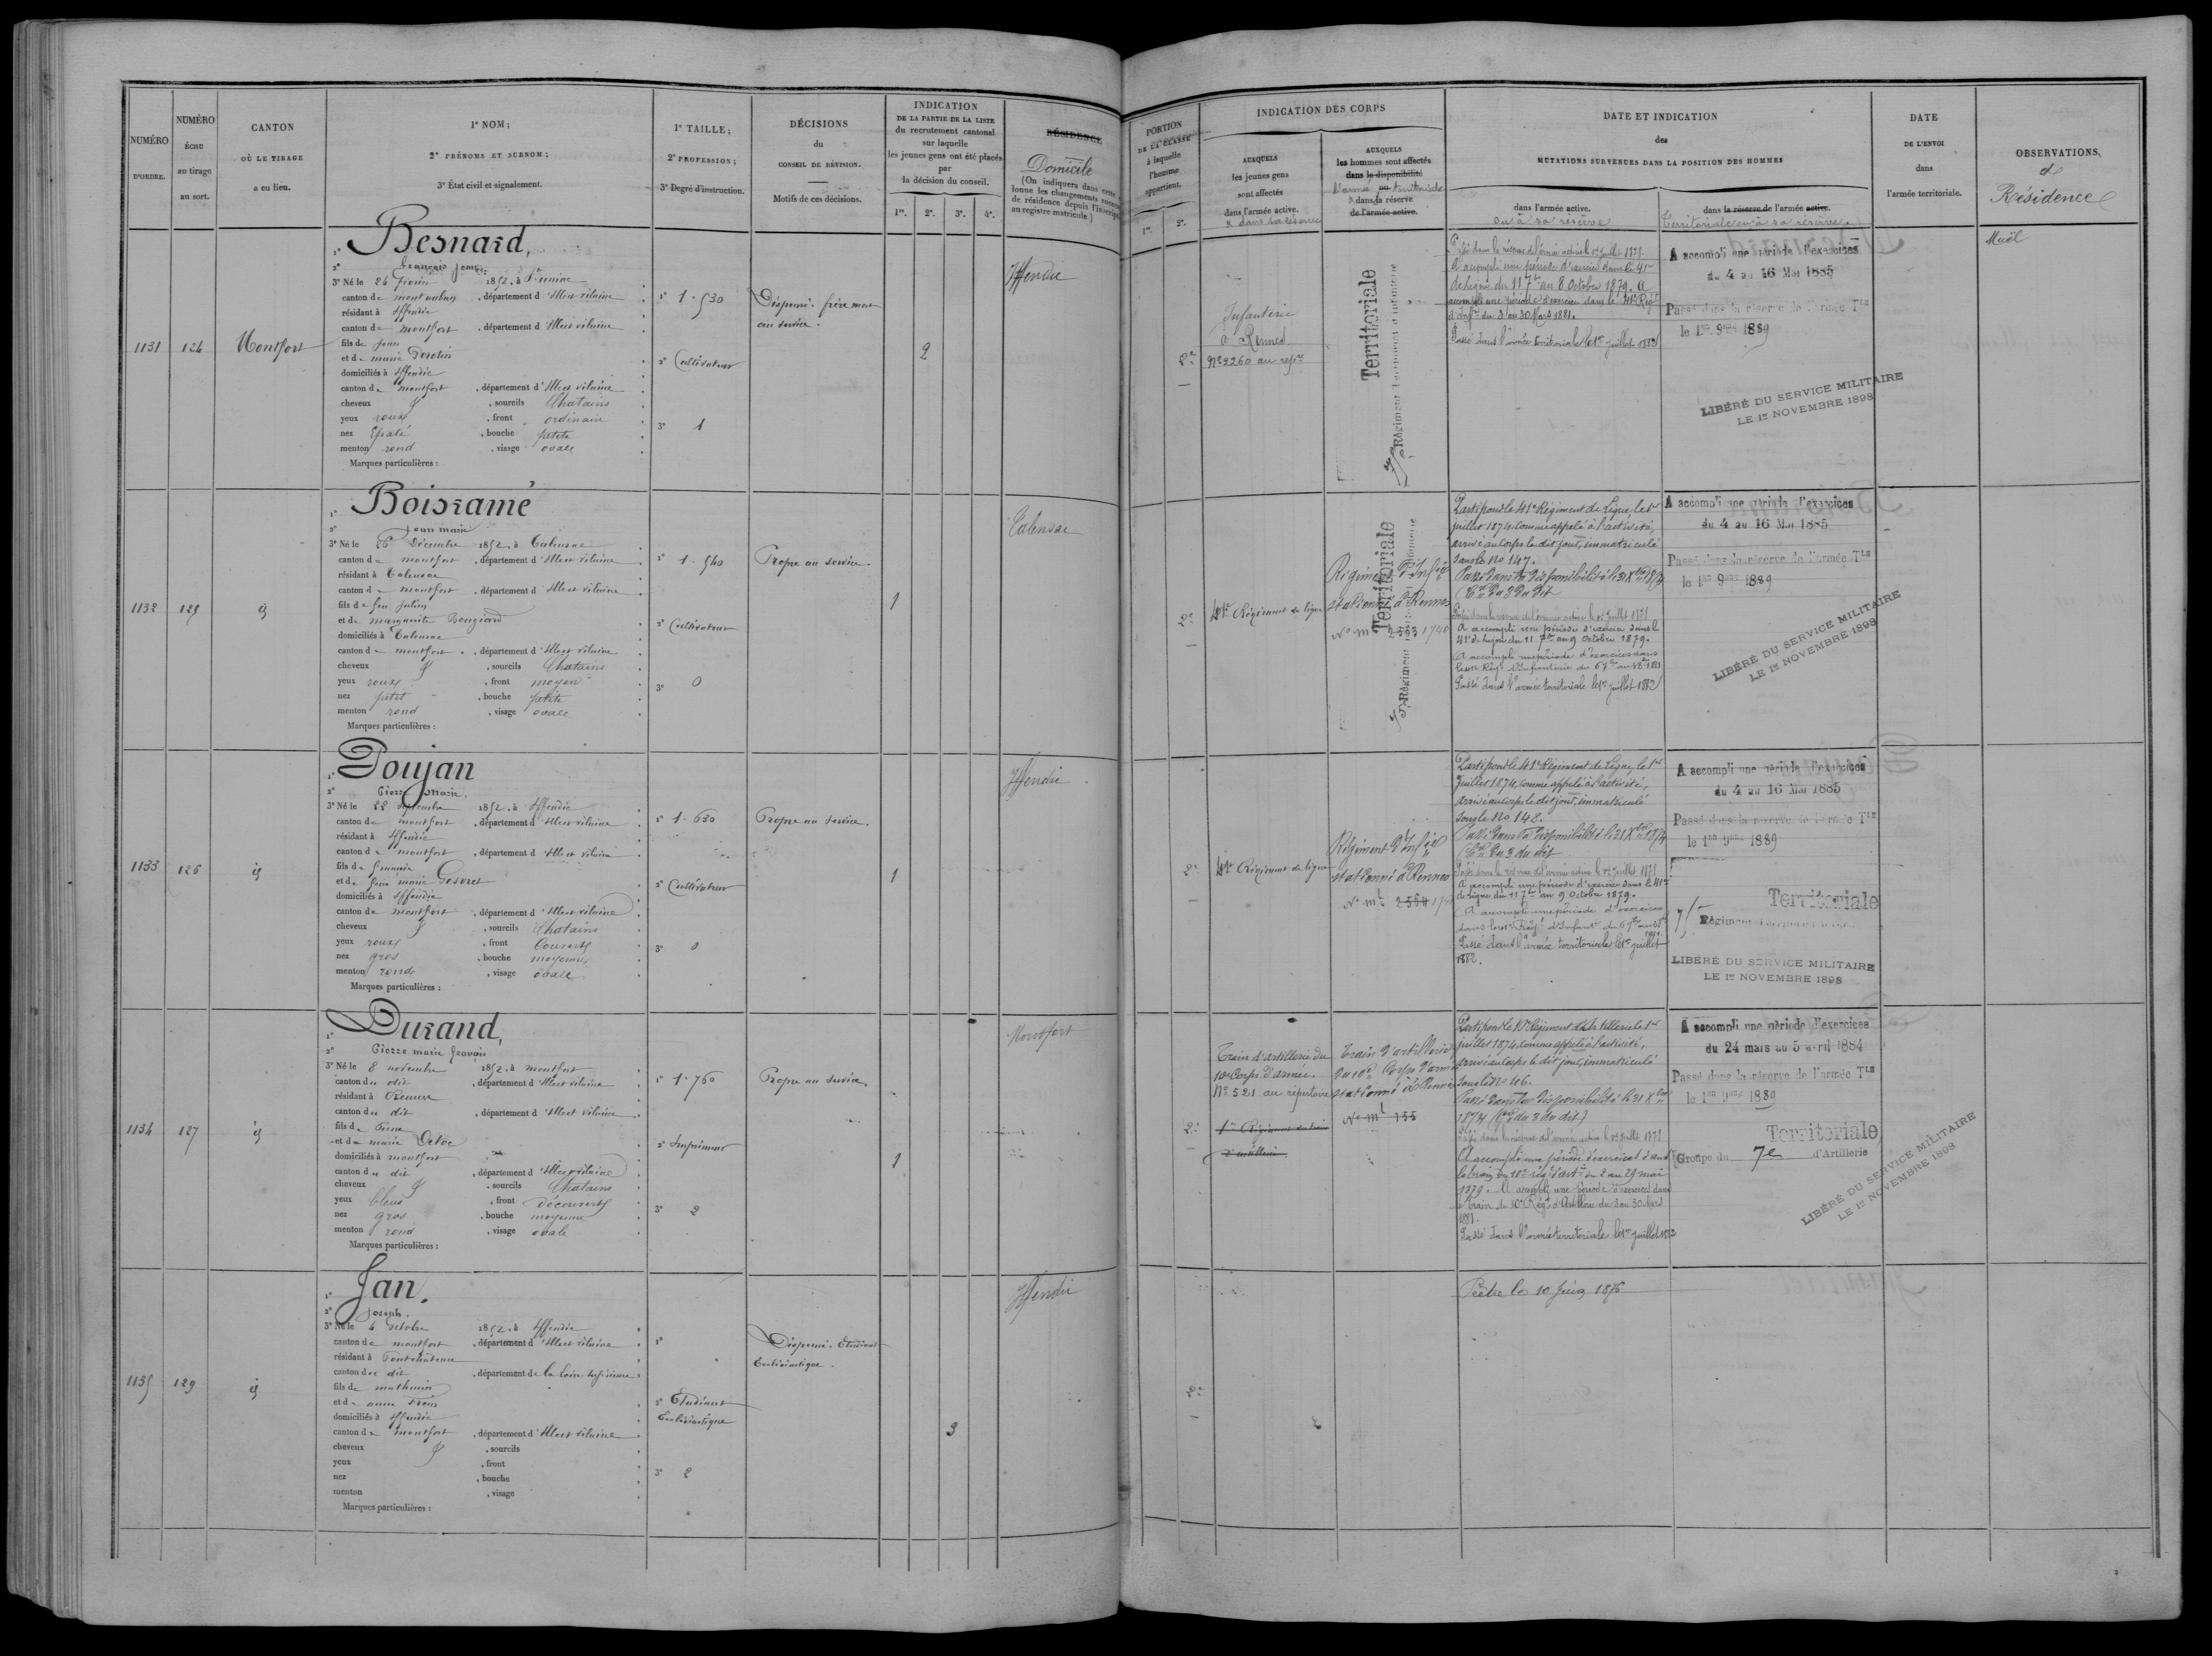 NUMÉRO D'ORDRE.
NUMÉRO ÉCHU au tirage au sort.
CANTON OÙ LE TIRAGE a eu lieu.
1º NOM;
2º PRÉNOMS ET SURNOM;
3º État civil et signalement.
1º TAILLE;
2º PROFESSION;
3º Degré d'instruction.
DÉCISIONS du CONSEIL DE RÉVISION.
Motifs de ces décisions.
INDICATION
DE LA PARTIE DE LA LISTE
du recrutement cantonal
sur laquelle
les jeunes gens ont été placés
par
la décision du conseil.
1re. 2e. 3e. 4e.
RÉSIDENCE
Domicile
(On indiquera dans cette
lonne les changements
de résidence depuis l'inscription
au registre matricule.)
PORTION
DE LA CLASSE
à laquelle
l'homme
appartient.
1re. 2e.
INDICATION DES CORPS
AUXQUELS
les jeunes gens
sont affectés
dans l'armée active.
& dans sa réserve
AUXQUELS
les hommes sont affectés
dans la disponibilité
ou territoriale
dans la réserve
de l'armée active.
DATE ET INDICATION
des
MUTATIONS SURVENUES DANS LA POSITION DES HOMMES
dans l'armée active.
ou à sa réserve
dans la réserve de l'armée active.
Territoriale ou à sa réserve.
DATE
DE L'ENVOI
dans
l'armée territoriale.
OBSERVATIONS.
&
Résidence
1131 124 Montfort
1º Besnard,
2º François
3º Né le 24 1852, à
canton de montauban, département d'Ille et vilaine
résidant à Iffendic
canton de montfort, département d'Ille et vilaine
fils de jean
et de marie
domiciliés à Iffendic
canton de montfort, département d'Ille et vilaine
cheveux &, sourcils Chatains
yeux roux, front ordinaire
nez Epaté, bouche petite
menton rond, visage ovale
Marques particulières :
1º 1.530
2º Cultivateur
3º 1
Dispensé. frère mort
au service.
2
Iffendic
2e
Infanterie
à Rennes
Nº 2260 au repre
Territoriale
Régiment territorial d'infanterie
Passé dans la réserve de l'armée active le 1er Juillet 1877.
A accompli une période d'exercice dans le 41e
de ligne du 11 7bre au 8 Octobre 1879. A
accompli une période d'exercice dans le 41e Régt
d'Infie du 3 au 30 Mars 1881.
Passé dans l'armée territoriale le 1er juillet 1882
A accompli une période d'exercices
du 4 au 16 Mai 1885
Passé dans la réserve de l'armée Tle
le 1er 9bre 1889
LIBÉRÉ DU SERVICE MILITAIRE
LE 1er NOVEMBRE 1898
Muël
1132 125 id
1º Boissamé
2º Jean marie
3º Né le 26 Décembre 1852, à Talensac
canton de montfort, département d'Ille et vilaine
résidant à Talensac
canton de montfort, département d'Ille et vilaine
fils de feu julien
et de marguerite
domiciliés à Talensac
canton de montfort, département d'Ille et vilaine
cheveux &, sourcils Chatains
yeux roux, front moyen
nez petit, bouche petite
menton rond, visage ovale
Marques particulières :
1º 1.540
2º Cultivateur
3º 0
Propre au service.
1
Talensac
2e
41e Régiment de ligne
Régiment d'Infie
stationné à Rennes
No mle 2563 1740
Territoriale
Régiment territorial d'infanterie
Parti pour le 41e Régiment de Ligne, le 1er
juillet 1874, comme appelé à l'activité,
arrivé au Corps le dit jour, immatriculé
sous le No 147.
Passé dans la Disponibilité le 31 Xbre 1874
du 3 du dit
Passé dans la réserve de l'armée active le 1er Juillet 1877
A accompli une période d'exercice dans le
41e de ligne du 11 7bre au 9 Octobre 1879.
A accompli une période d'exercices dans
Régt d'Infanterie du 6 7bre au 1881
Passé dans l'armée territoriale le 1er juillet 1882
A accompli une période d'exercices
du 4 au 16 Mai 1885
Passé dans la réserve de l'armée Tle
le 1er 9bre 1889
LIBÉRÉ DU SERVICE MILITAIRE
LE 1er NOVEMBRE 1898
1133 126 id
1º Doujan
2º Pierre Marie.
3º Né le 22 septembre 1852, à Iffendic
canton de montfort, département d'Ille et vilaine
résidant à Iffendic
canton de montfort, département d'Ille et vilaine
fils de
et de feue marie
domiciliés à Iffendic
canton de montfort, département d'Ille et vilaine
cheveux &, sourcils Chatains
yeux roux, front Couvert
nez gros, bouche moyenne
menton rond, visage ovale
Marques particulières :
1º 1.630
2º Cultivateur
3º 0
Propre au service.
1
Iffendic
2e
41e Régiment de ligne
Régiment d'Infie
stationné à Rennes
No mle 2564
Parti pour le 41e Régiment de Ligne, le 1er
Juillet 1874, comme appelé à l'activité,
arrivé au corps le dit jour, immatriculé
sous le No 148.
Passé dans la Disponibilité le 31 Xbre 1874
du 3 du dit
Passé dans la réserve de l'armée active le 1er Juillet 1877
A accompli une période d'exercice dans le 41e
de ligne du 11 7bre au 9 Octobre 1879.
A accompli une période d'exercices
dans Régt d'Infantie du 6 7bre au
Passé dans l'armée territoriale le 1er juillet
1882.
A accompli une période d'exercices
du 4 au 16 Mai 1885
Passé dans la réserve de l'armée Tle
le 1er 9bre 1889
Territoriale
Régiment territorial
LIBÉRÉ DU SERVICE MILITAIRE
LE 1er NOVEMBRE 1898
1134 127 id
1º Durand,
2º Pierre marie françois
3º Né le 8 novembre 1852, à montfort
canton du dit, département d'Ille et vilaine
résidant à Rennes
canton du dit, département d'Ille et vilaine
fils de Pierre
et de marie
domiciliés à montfort
canton du dit, département d'Ille et vilaine
cheveux &, sourcils Chatains
yeux bleus, front découvert
nez gros, bouche moyenne
menton rond, visage ovale
Marques particulières :
1º 1.760
2º Imprimeur
3º 2
Propre au service.
1
Montfort
2e
Train d'artillerie du
10e Corps d'armée.
Nº 521 au répertoire
1er Régiment du train
d'artillerie
Train d'artillerie
du 10e Corps d'armée
stationné à Rennes
No mle 135
Parti pour le 10e Régiment d'Artillerie le 1er
juillet 1874, comme appelé à l'activité,
arrivé au Corps le dit jour, immatriculé
sous le No 46.
Passé dans la Disponibilité le 31 Xbre
1874 (du 3 du dit)
Passé dans la réserve de l'armée active le 1er Juillet 1877
A accompli une période d'exercices dans
le train du 10e régt d'artie du 2 au 29 mai
1879. A accompli une période d'exercices dans
le train du 10e Régt d'Artillerie du 3 au 30 Mars
1881.
Passé dans l'armée territoriale le 1er juillet 1882
A accompli une période d'exercices
du 24 mars au 5 avril 1884
Passé dans la réserve de l'armée Tle
le 1er 9bre 1889
Territoriale
Groupe du 7e d'Artillerie
LIBÉRÉ DU SERVICE MILITAIRE
LE 1er NOVEMBRE 1898
1135 129 id
1º Jan.
2º Joseph.
3º Né le 4 octobre 1852, à Iffendic
canton de montfort, département d'Ille et vilaine
résidant à Pontchâteau
canton du dit, département de la Loire inférieure
fils de mathurin
et de anne
domiciliés à Iffendic
canton de montfort, département d'Ille et vilaine
cheveux &, sourcils
yeux, front
nez, bouche
menton, visage
Marques particulières :
1º
2º Etudiant
Ecclésiastique
3º 2
Dispensé. Etudiant
Ecclésiastique.
3
Iffendic
2e
Prêtre le 10 juin 1876